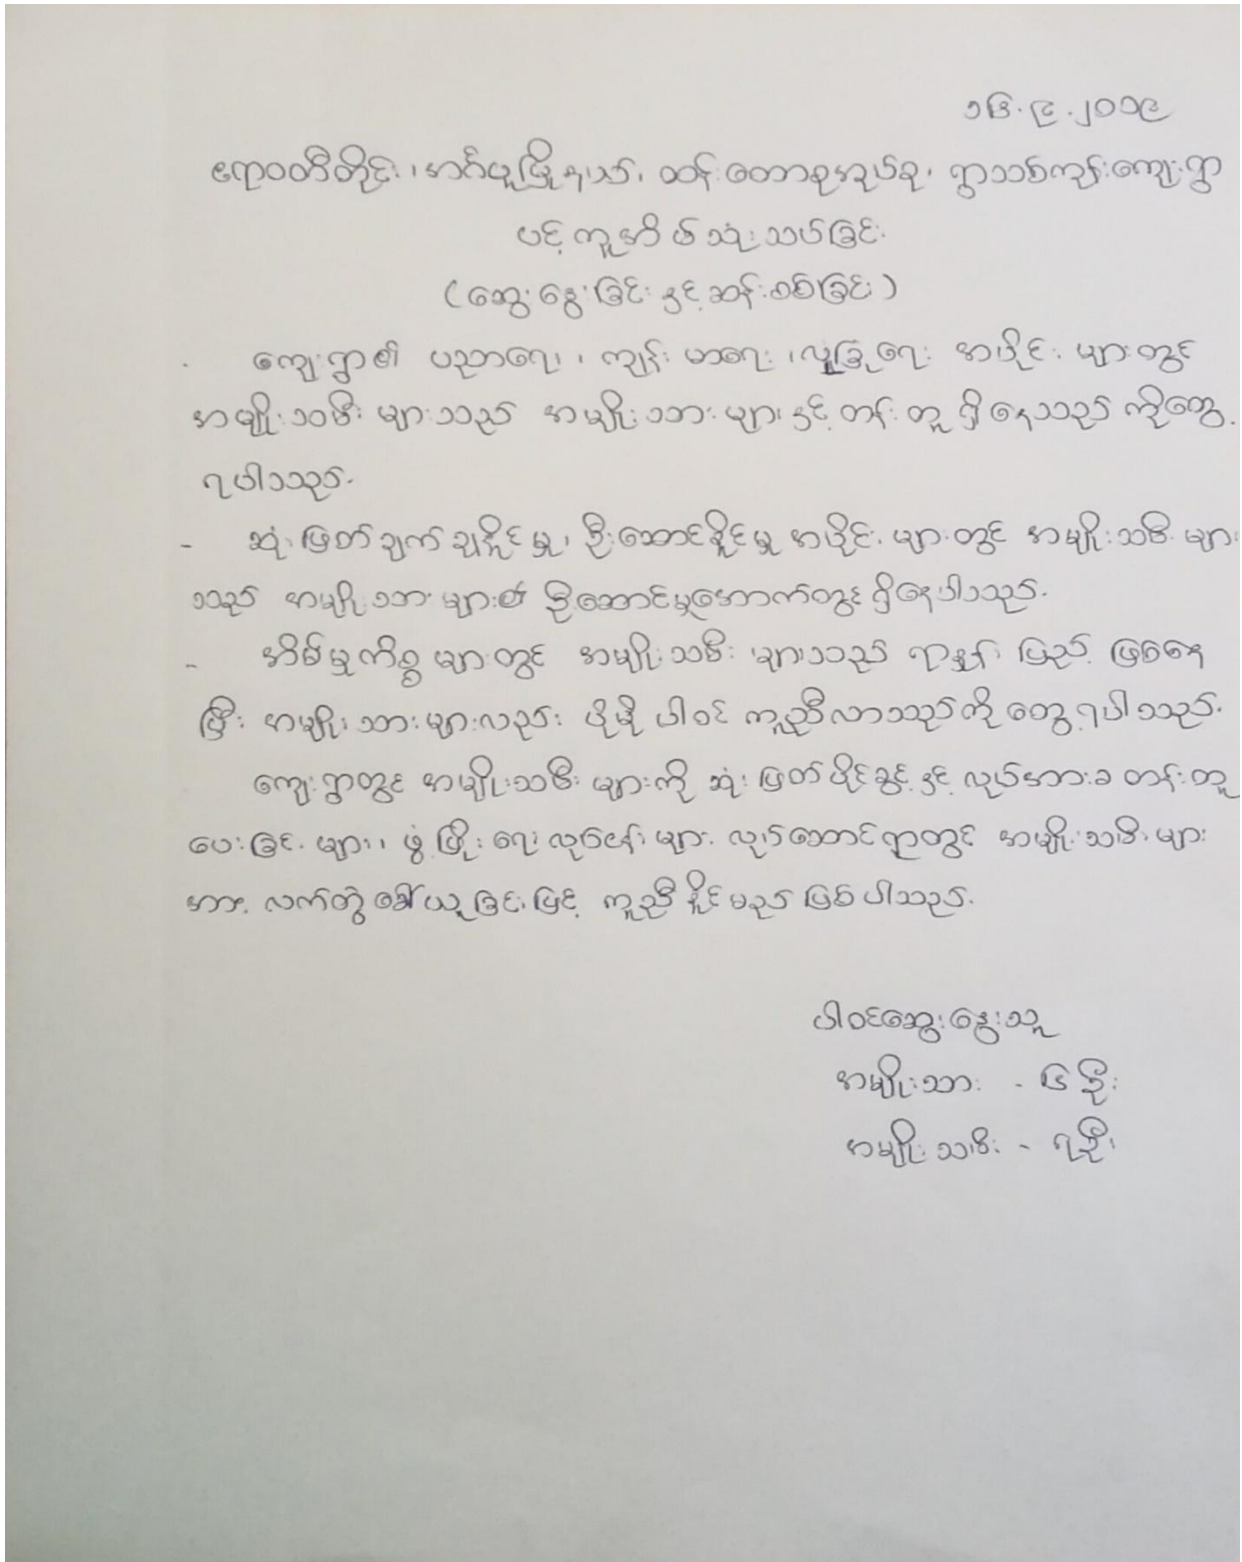 ၁၆.၉.၂၀၁၉
ဧရာဝတီတိုင်း၊ အင်္ဂပူမြို့နယ်၊ ထန်းတောစုအုပ်စု၊ ရွာသစ်ကုန်းကျေးရွာ
ပင့်ကူအိမ်သုံးသပ်ခြင်း
(ဆွေးနွေးခြင်းနှင့်ဆန်းစစ်ခြင်း)
- ကျေးရွာ၏ ပညာရေး၊ ကျန်းမာရေး၊ လူမှုရေး အပိုင်းများတွင်
အမျိုးသမီးများသည် အမျိုးသားများနှင့် တန်းတူ ရှိနေသည် ကိုတွေ့
ရပါသည်။
- ဆုံးဖြတ်ချက်ချနိုင်မှု၊ ဦးဆောင်နိုင်မှု အပိုင်းများတွင် အမျိုးသမီးများ
သည် အမျိုးသားများ၏ ဦးဆောင်မှုအောက်တွင် ရှိနေပါသည်။
- အိမ်မှုကိစ္စများတွင် အမျိုးသမီးများသည် ရာနှုန်းပြည့် ဖြစ်နေ
ပြီး အမျိုးသားများလည်း ပိုမို ပါဝင် ကူညီလာသည်ကို တွေ့ရပါသည်။
ကျေးရွာတွင် အမျိုးသမီးများကို ဆုံးဖြတ်ပိုင်ခွင့်နှင့် လုပ်အားခ တန်းတူ
ပေးခြင်းများ၊ ဖွံ့ဖြိုးရေးလုပ်ငန်းများ လုပ်ဆောင်ရာတွင် အမျိုးသမီးများ
အား လက်တွဲခေါ်ယူခြင်းဖြင့် ကူညီနိုင်မည် ဖြစ်ပါသည်။
ပါဝင်ဆွေးနွေးသူ
အမျိုးသား - ၆ ဦး
အမျိုးသမီး - ၇ဦး